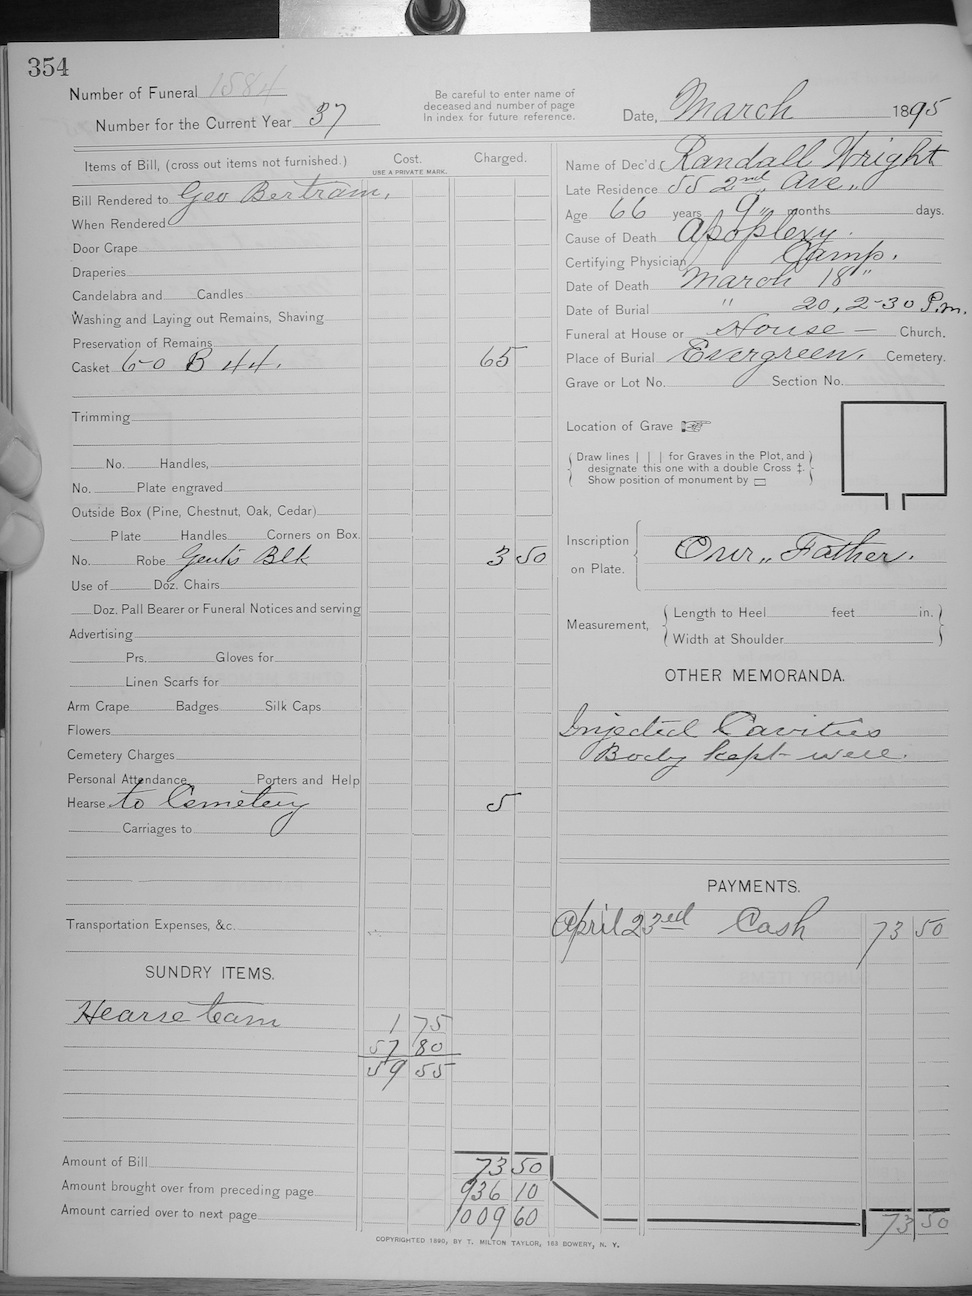 354
Number of Funeral 1584
Number for the Current Year 37
Be careful to enter name of
deceased and number of page
In index for future reference.
Date, March 1895
Items of Bill, (cross out items not furnished.) Cost. Charged.
USE A PRIVATE MARK.
Bill Rendered to Geo Bertram,
When Rendered
Door Crape
Draperies
Candelabra and Candles
Washing and Laying out Remains, Shaving
Preservation of Remains
Casket 6-0 B 44. 65
Trimming
No. Handles,
No. Plate engraved
Outside Box (Pine, Chestnut, Oak, Cedar)
Plate Handles Corners on Box.
No. Robe Gent's Blk 3 50
Use of Doz. Chairs
Doz. Pall Bearer or Funeral Notices and serving
Advertising
Prs. Gloves for
Linen Scarfs for
Arm Crape Badges Silk Caps
Flowers
Cemetery Charges
Personal Attendance Porters and Help
Hearse to Cemetery 5
Carriages to
Transportation Expenses, &c.
SUNDRY ITEMS.
Hearse team 1 75
57 80
59 55
Amount of Bill 73 50
Amount brought over from preceding page 936 10
Amount carried over to next page 1009 60
Name of Dec'd Randall Wright
Late Residence 55 2nd " Ave "
Age 66 years 9 " months days.
Cause of Death Apoplexy.
Certifying Physician Camp.
Date of Death March 18"
Date of Burial " 20, 2-30 P.m.
Funeral at House or House - Church.
Place of Burial Evergreen. Cemetery.
Grave or Lot No. Section No.
Location of Grave
Draw lines | | | for Graves in the Plot, and
designate this one with a double Cross ‡.
Show position of monument by
Inscription
on Plate.
Our " Father.
Measurement,
Length to Heel feet in.
Width at Shoulder
OTHER MEMORANDA.
Injected Cavities
Body kept well.
PAYMENTS.
April 23rd Cash 73 50
73 50
COPYRIGHTED 1890, BY T. MILTON TAYLOR, 163 BOWERY, N. Y.